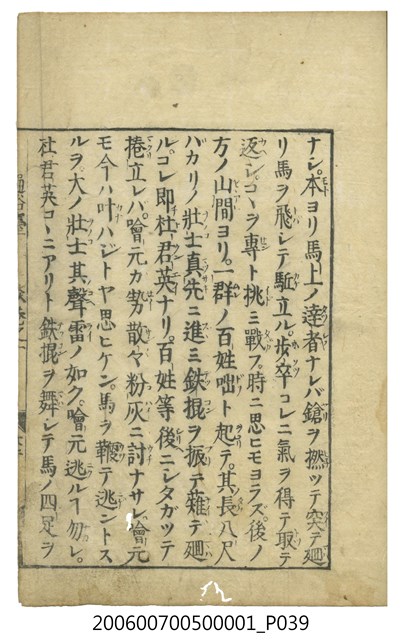 ナシ。本ヨリ馬上ノ達者ナレバ鎗ヲ撚ツテ突テ廻
リ馬ヲ飛シテ駈立ル。歩卒コレニ氣ヲ得テ取テ
返シ。コヽヲ專ト挑ミ戰フ。時ニ思ヒモヨラズ。後ノ
方ノ山間ヨリ。一群ノ百姓咄ト起テ。其長八尺
バカリノ壯士真先ニ進ミ鉄棍ヲ振テ薙テ廻
ル。コレ即杜君英ナリ。百姓等後ニシタガツテ
捲立レバ。噲元カ勢散々粉灰ニ討ナサレ。噲元
モ今ハ叶ハジトヤ思ヒケン。馬ヲ鞭テ逃ントス
ルヲ大ノ壯士其聲雷ノ如ク。噲元逃ルヿ勿レ。
杜君英コヽニアリト鉄棍ヲ舞シテ馬ノ四足ヲ
200600700500001_P039